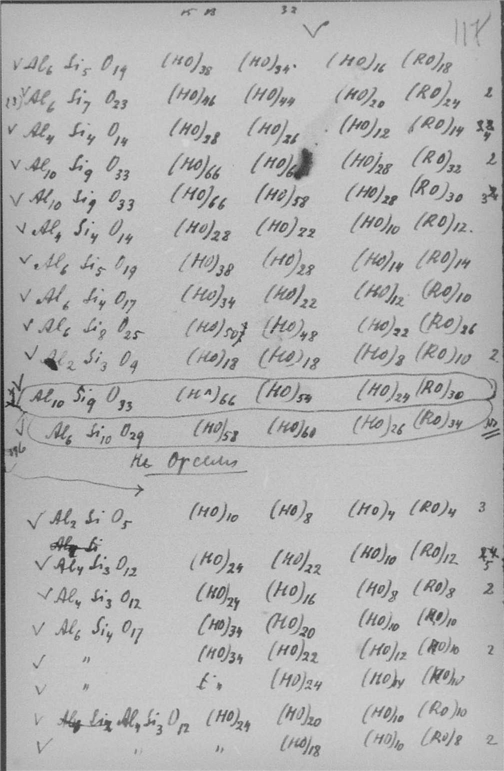 117
✓ Al6 Si5 O19 (HO)38 (HO)34 (HO)16 (RO)18
✓ Al6 Si7 O23 (HO)46 (HO)44 (HO)20 (RO)24 2
✓ Al4 Si4 O14 (HO)28 (HO)26 (HO)12 (RO)14
✓ Al10 Si9 O33 (HO)66 (HO)6 (HO)28 (RO)32 2
✓ Al10 Si9 O33 (HO)66 (HO)58 (HO)28 (RO)30
✓ Al4 Si4 O14 (HO)28 (HO)22 (HO)10 (RO)12
✓ Al6 Si5 O19 (HO)38 (HO)28 (HO)14 (RO)14
✓ Al6 Si4 O17 (HO)34 (HO)22 (HO)12 (RO)10
✓ Al6 Si8 O25 (HO)50 (HO)48 (HO)22 (RO)26
✓ Al2 Si3 O9 (HO)18 (HO)18 (HO)8 (RO)10 2
Al10 Si9 O33 (HO)66 (HO)54 (HO)24 (RO)30
Al6 Si10 O29 (HO)58 (HO)60 (HO)26 (RO)34
✓ Al2 Si O5 (HO)10 (HO)8 (HO)4 (RO)4 3
✓ Al4 Si3 O12 (HO)24 (HO)22 (HO)10 (RO)12
✓ Al4 Si3 O12 (HO)24 (HO)16 (HO)8 (RO)8 2
✓ Al6 Si4 O17 (HO)34 (HO)20 (HO)10 (RO)10
✓ " (HO)34 (HO)22 (HO)12 (RO)10 2
✓ " " (HO)24 (HO)14 (RO)10
✓ Al4 Si3 O12 (HO)24 (HO)20 (HO)10 (RO)10
✓ " " (HO)18 (HO)10 (RO)8 2